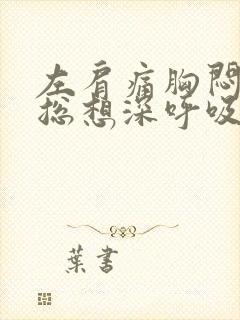 左肩痛胸悶
總想深呼吸
葉書